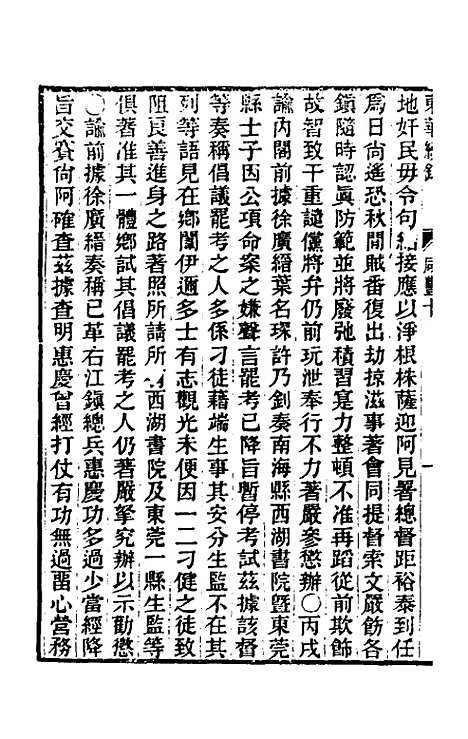 東華續錄　咸豐十
地奸民毋令句結接應以淨根株薩迎阿見署總督距裕泰到任
爲日尚遙恐秋閒賊番復出劫掠滋事著會同提督索文嚴飭各
鎭隨時認眞防範並將廢弛積習寔力整頓不准再蹈從前欺飾
故智致干重譴儻將弁仍前玩泄奉行不力著嚴參懲辦〇丙戌
諭內閣前據徐廣縉葉名琛許乃釗奏南海縣西湖書院暨東莞
縣士子因公項命案之嫌聲言罷考已降旨暫停考試茲據該督
等奏稱倡議罷考之人多係刁徒藉端生事其安分生監不在其
列等語見在鄕闈伊邇多士有志觀光未便因一二刁健之徒致
阻良善進身之路著照所請所有西湖書院及東莞一縣生監等
俱著准其一體鄕試其倡議罷考之人仍著嚴拏究辦以示勸懲
〇諭前據徐廣縉奏稱已革右江鎭總兵惠慶功多過少當經降
旨交賽尙阿確查茲據查明惠慶曾經打仗有功無過留心營務